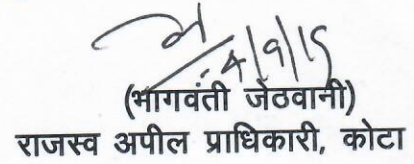 4/9/15
(भागवंती जेठवानी)
राजस्व अपील प्राधिकारी, कोटा